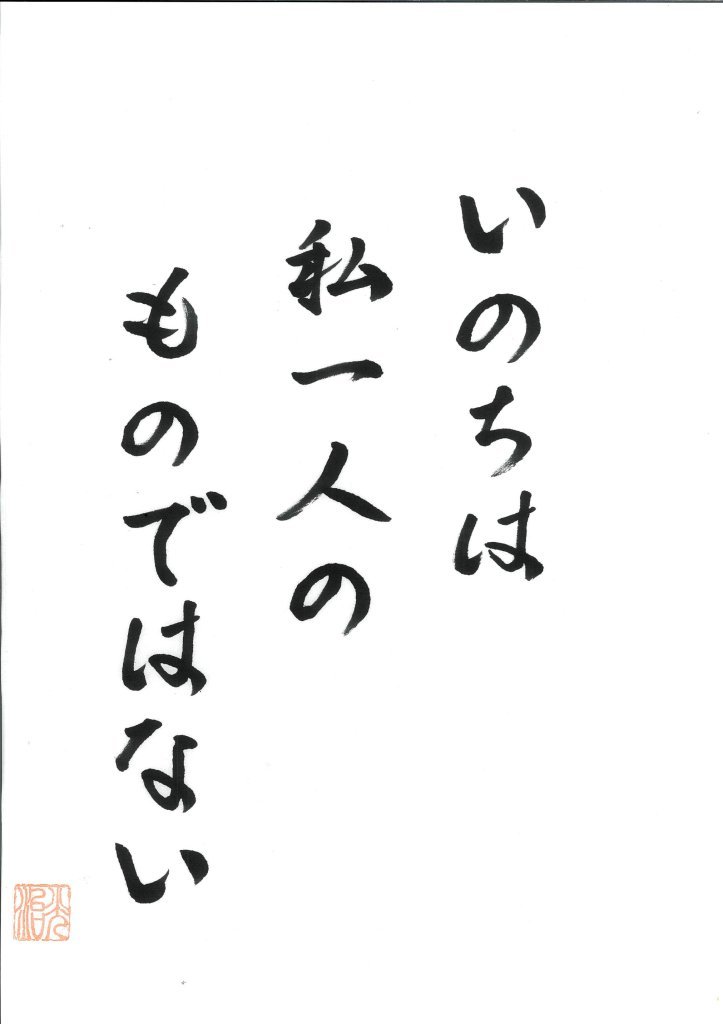 いのちは
私一人の
ものではない